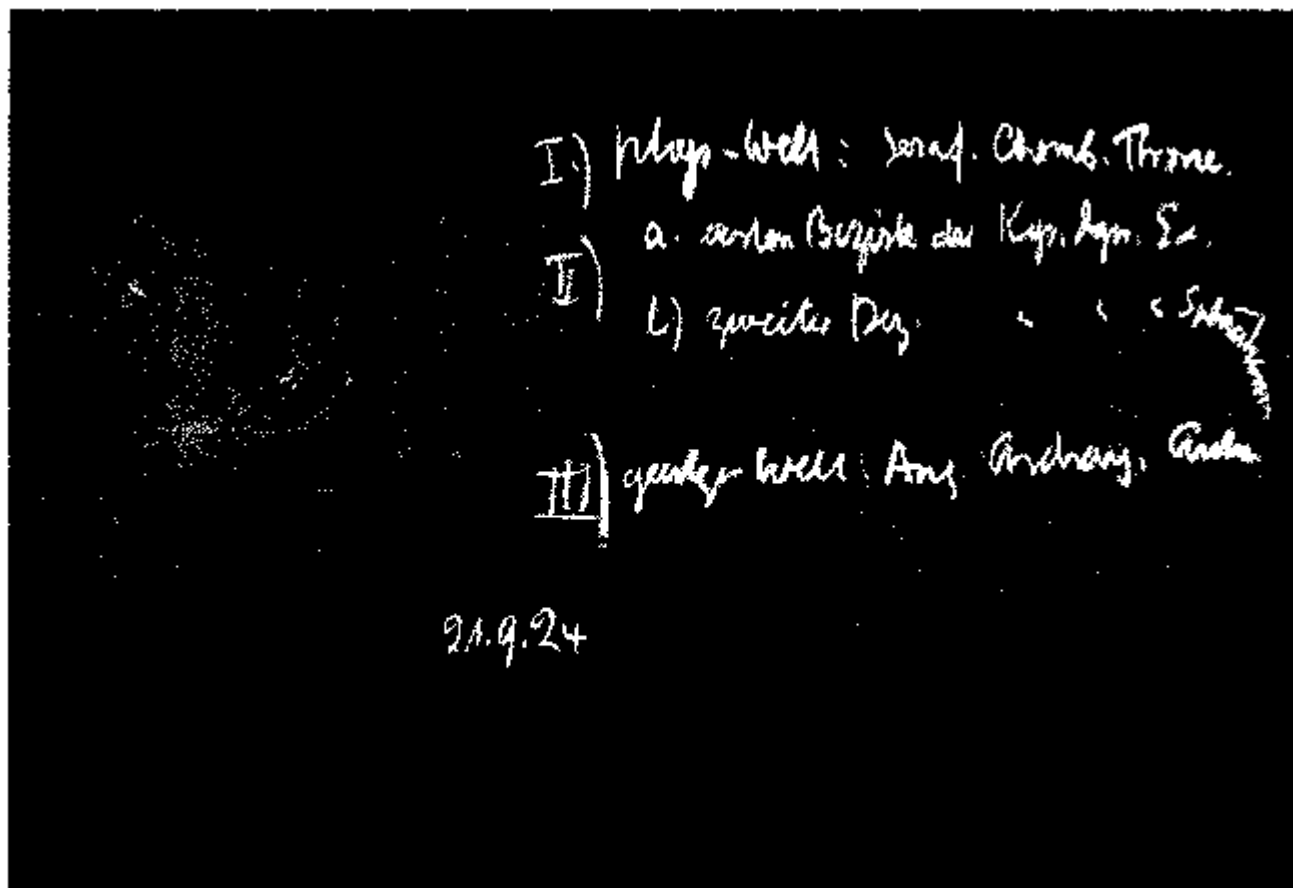 I.) phys. Welt: Seraf. Cherub. Throne.
II) a. erster Bezirk der Kyr. Dyn. Ex.
b) zweiter Bez. " " "
III) geistige Welt: Ang Archang. Archai
21.9.24